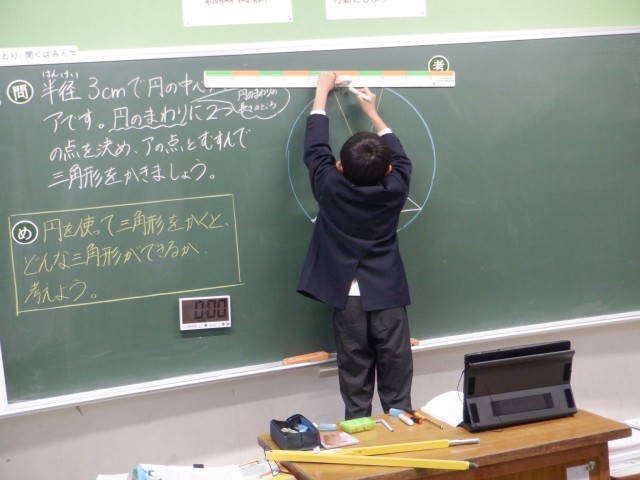 とり、聞くはみんな
問 半径3cmで円の中心
はんけい
円のまわりの
アです。円のまわりに2つ
の点を決め、アの点とむすんで
三角形をかきましょう。
考
め 円を使って三角形をかくと、
どんな三角形ができるか
考えよう。
0:00